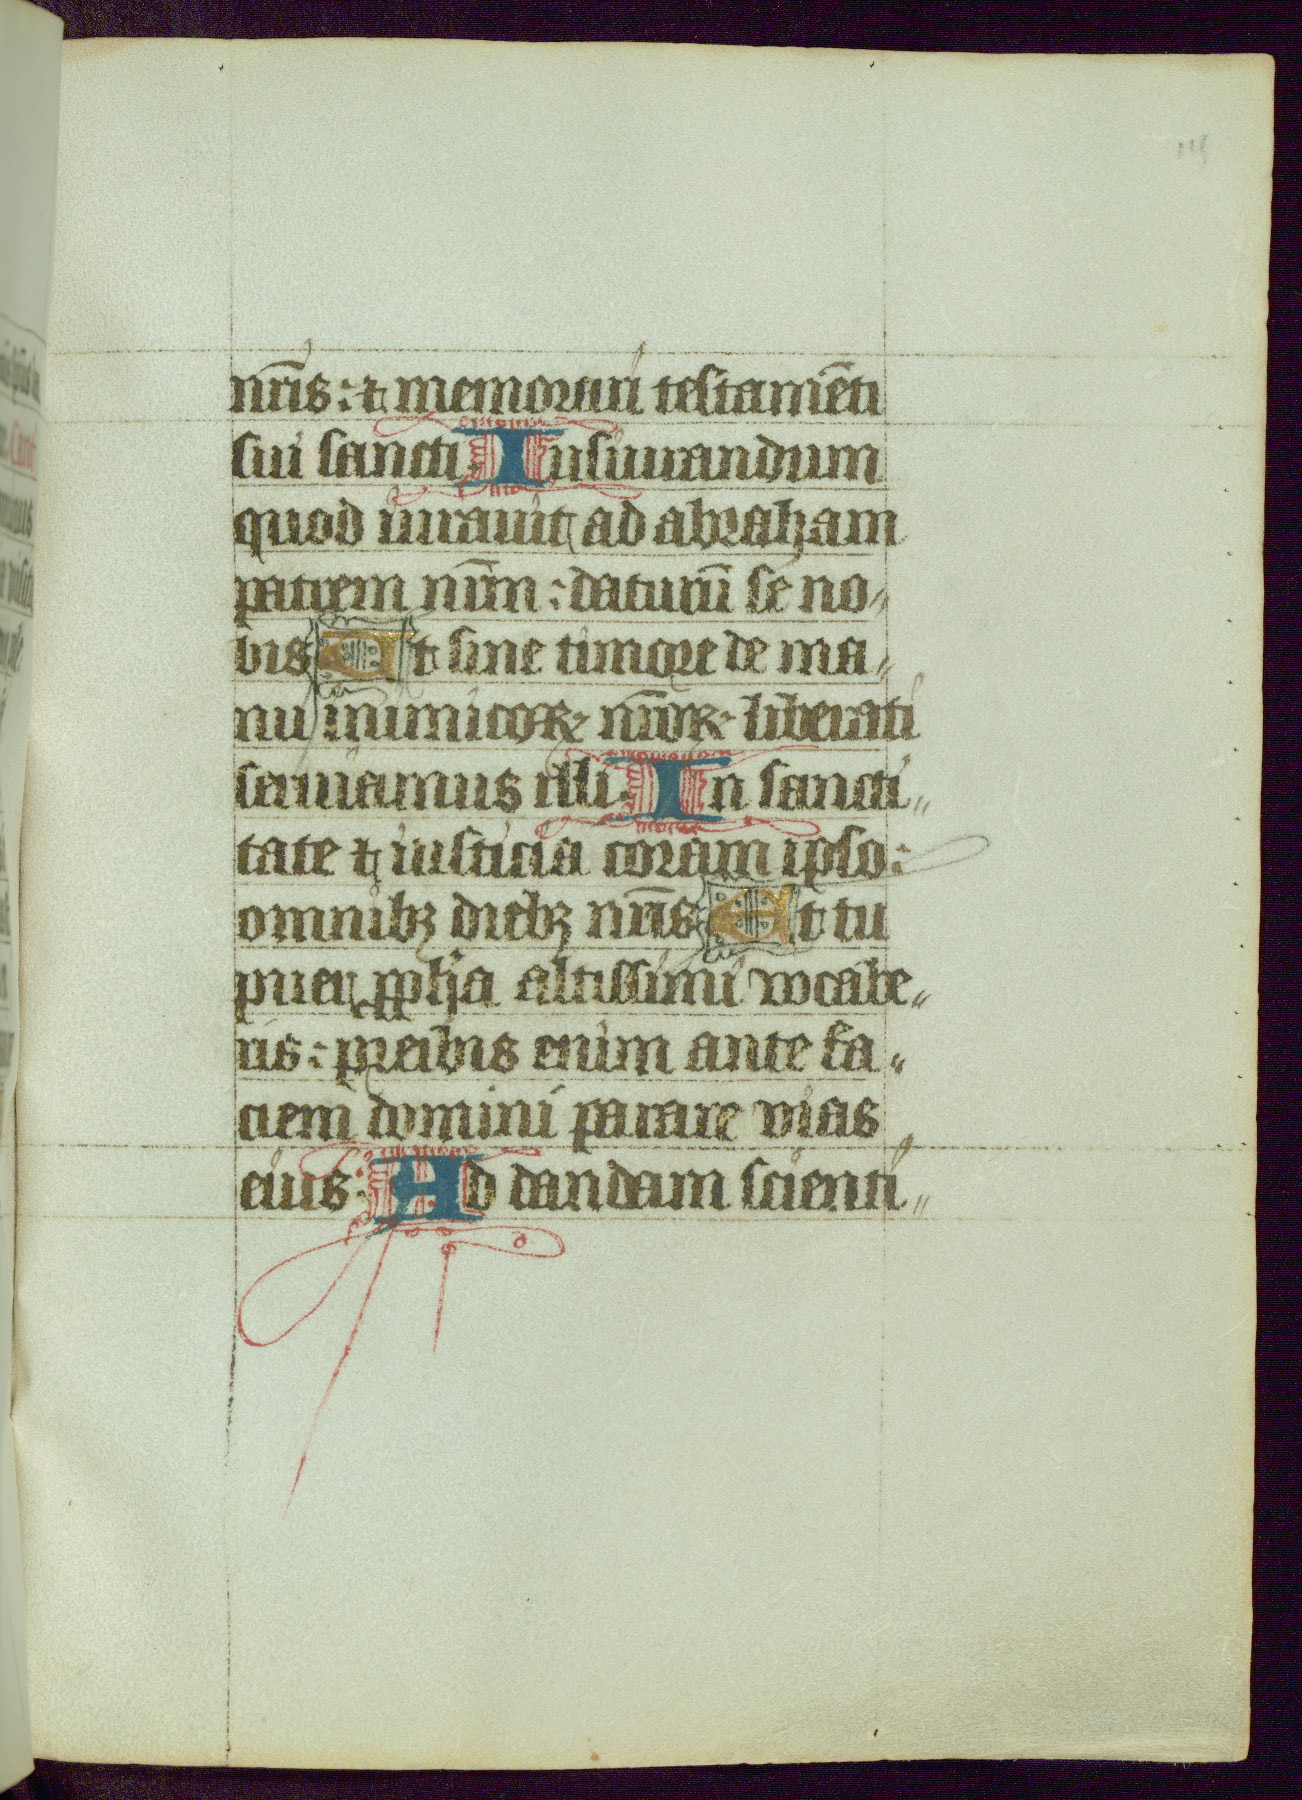 nr̄is: et memorari testamēti
sui sancti. Iusiurandum
quod iurauit ad abraham
patrem nr̄m: daturū se no〃
bis Ut sine timore de ma〃
nu inimicoꝝ nr̄oꝝ liberati
seruiamus illi. In sancti〃
tate et iusticia coram ipso:
omnibꝫ diebꝫ nr̄is Et tu
puer ꝓpha altissimi vocabe〃
ris: preibis enim ante fa〃
ciem domini parare vias
eius. Ad dandam scienti〃